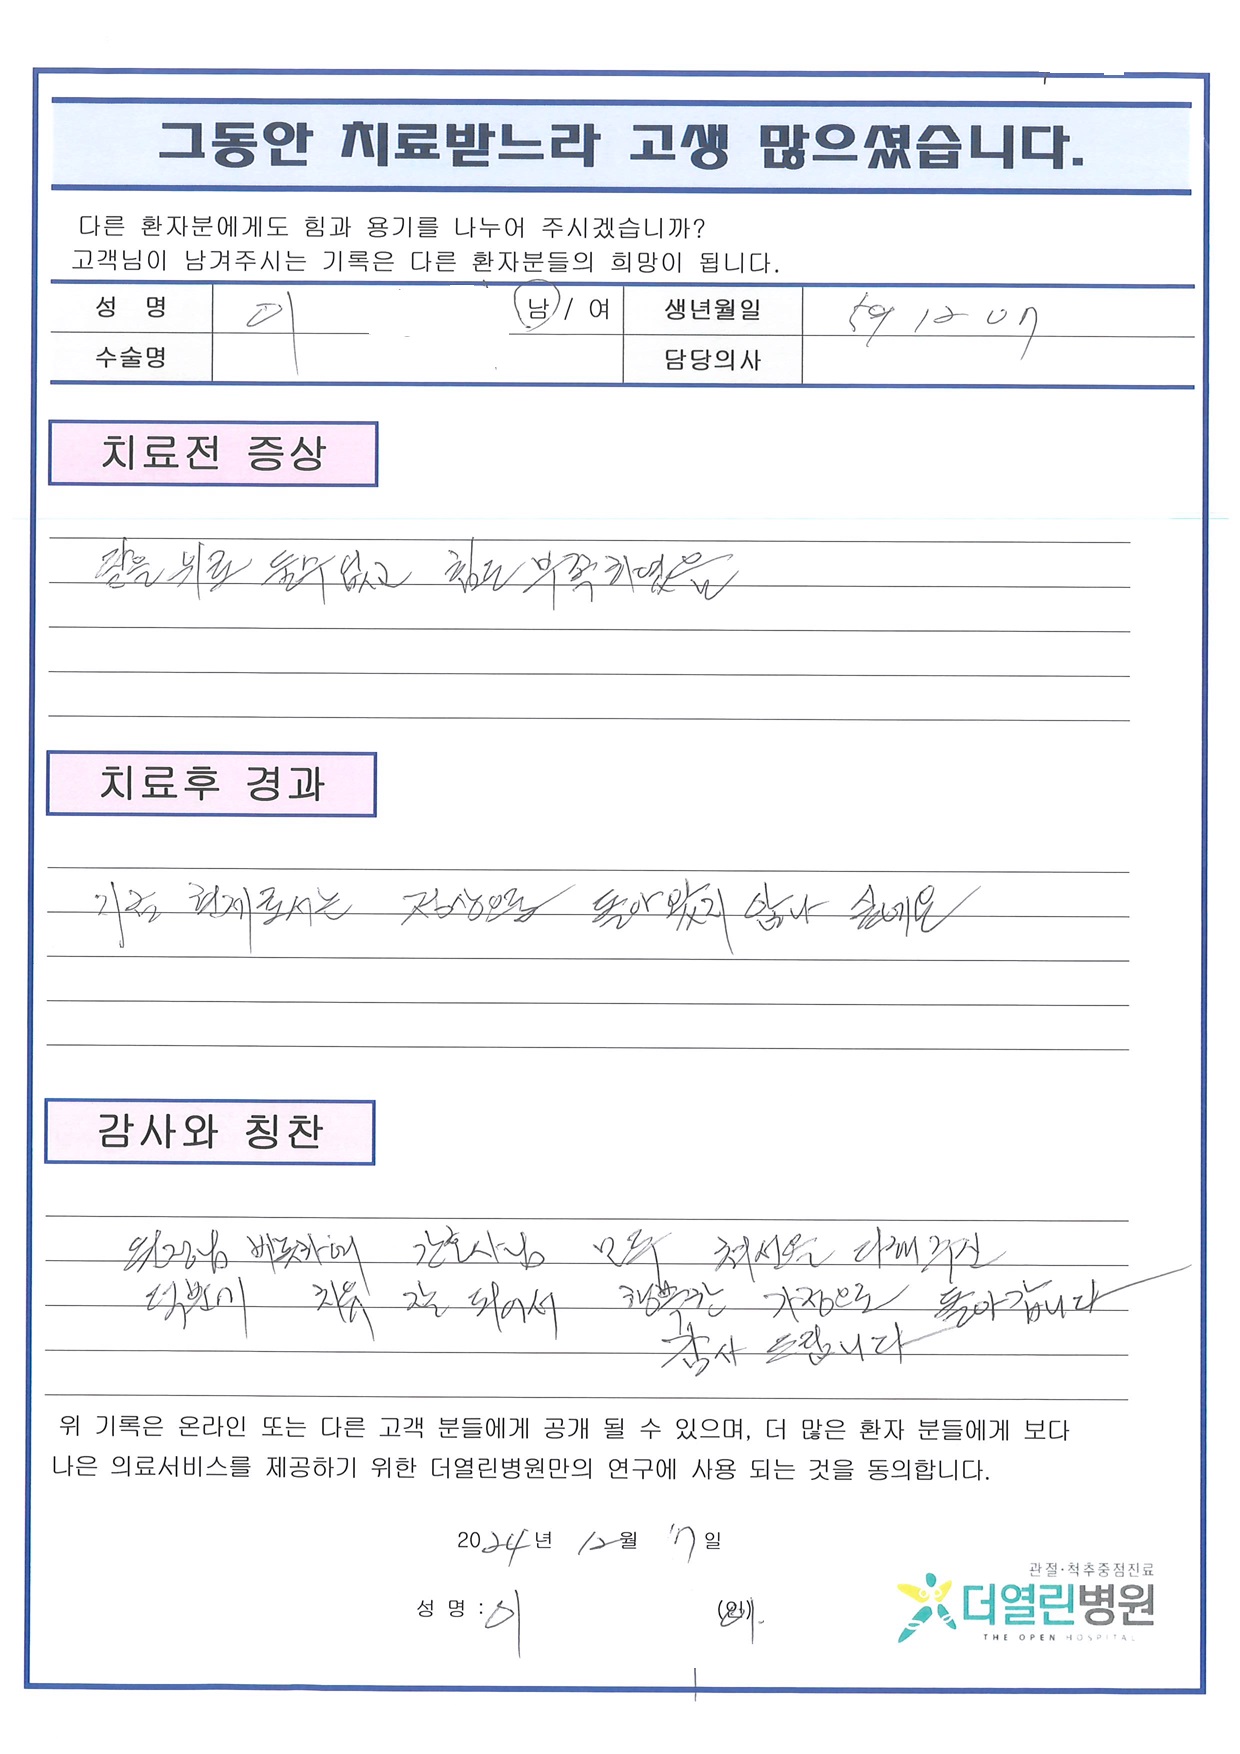 그동안 치료받느라 고생 많으셨습니다.
다른 환자분에게도 힘과 용기를 나누어 주시겠습니까?
고객님이 남겨주시는 기록은 다른 환자분들의 희망이 됩니다.
성 명 이 남 / 여 생년월일 59 12 07
수술명 담당의사
치료전 증상
팔을 뒤로 돌수없고 힘도 부족하였음
치료후 경과
지금 현재로서는 정상으로 돌아 왔지 않나 싶네요
감사와 칭찬
원장님 비롯하여 간호사님 모두 최선을 다해주신
덕분에 치유 잘 되어서 행복한 가정으로 돌아갑니다
감사 드립니다
위 기록은 온라인 또는 다른 고객 분들에게 공개 될 수 있으며, 더 많은 환자 분들에게 보다
나은 의료서비스를 제공하기 위한 더열린병원만의 연구에 사용 되는 것을 동의합니다.
2024년 12월 17일
성 명 : 이 (인)
관절·척추중점진료
더열린병원
THE OPEN HOSPITAL